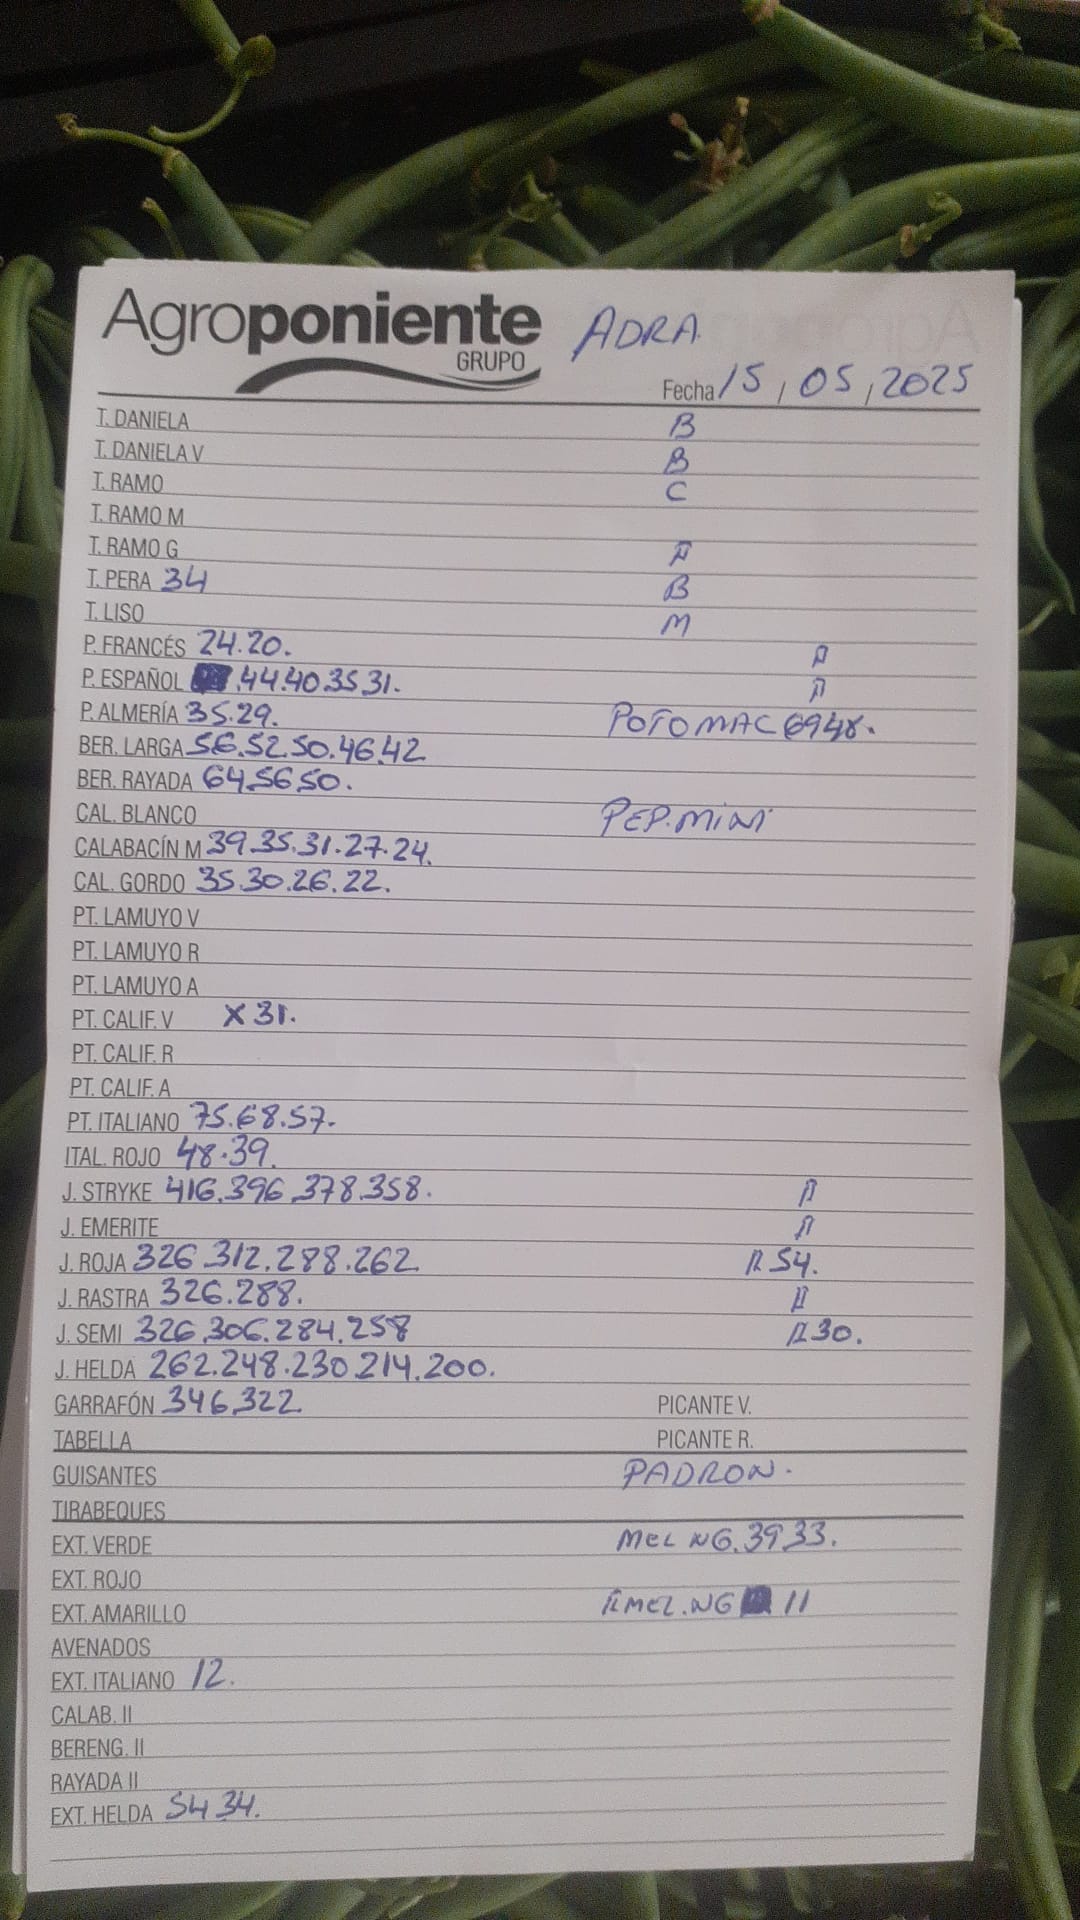 Agroponiente ADRA.
GRUPO
Fecha 15, 05, 2025
T. DANIELA B
T. DANIELA V B
T. RAMO C
T. RAMO M
T. RAMO G
T. PERA 34 B
T. LISO M
P. FRANCÉS 24.20.
P. ESPAÑOL .44.40.35.31.
P. ALMERÍA 35.29. POTOMAC 69 48.
BER. LARGA 56.52.50.46.42
BER. RAYADA 64.56.50.
CAL. BLANCO PEP. MINI
CALABACÍN M 39.35.31.27.24.
CAL. GORDO 35.30.26.22.
PT. LAMUYO V
PT. LAMUYO R
PT. LAMUYO A
PT. CALIF. V X 31.
PT. CALIF. R
PT. CALIF. A
PT. ITALIANO 75.68.57.
ITAL. ROJO 48.39.
J. STRYKE 416.396.378.358.
J. EMERITE
J. ROJA 326.312.288.262. R 54.
J. RASTRA 326.288.
J. SEMI 326.306.284.258 30.
J. HELDA 262.248.230.214.200.
GARRAFÓN 346.322 PICANTE V.
TABELLA PICANTE R.
GUISANTES PADRON.
TIRABEQUES
EXT. VERDE MEL NG. 39.33.
EXT. ROJO
EXT. AMARILLO MEL. NG 11
AVENADOS
EXT. ITALIANO 12.
CALAB. II
BERENG. II
RAYADA II
EXT. HELDA 54 34.